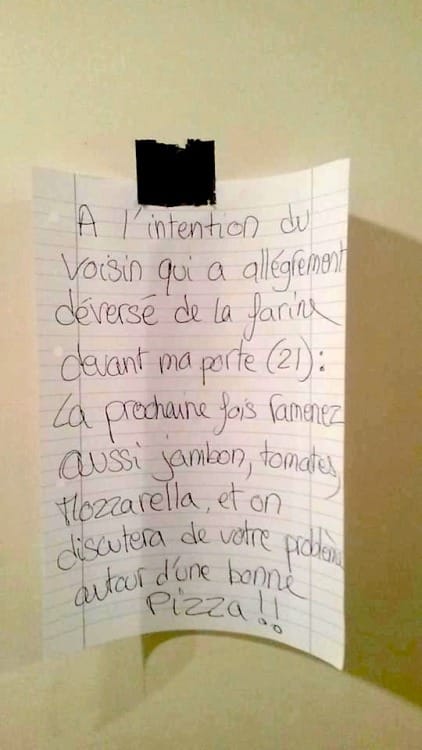 A l'intention du
voisin qui a allégrement
déversé de la farine
devant ma porte (21) :
La prochaine fois ramenez
aussi jambon, tomates,
Mozzarella, et on
discutera de votre problème
autour d'une bonne
Pizza !!